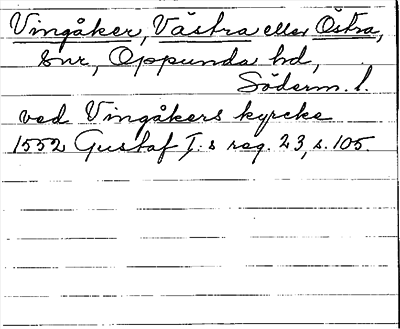 Vingåker, Västra eller Östra,
Snr, Oppunda hd,
Söderm. l.
ved Vingåkers kyrcke
1552 Gustaf I:s reg. 23, s. 105.